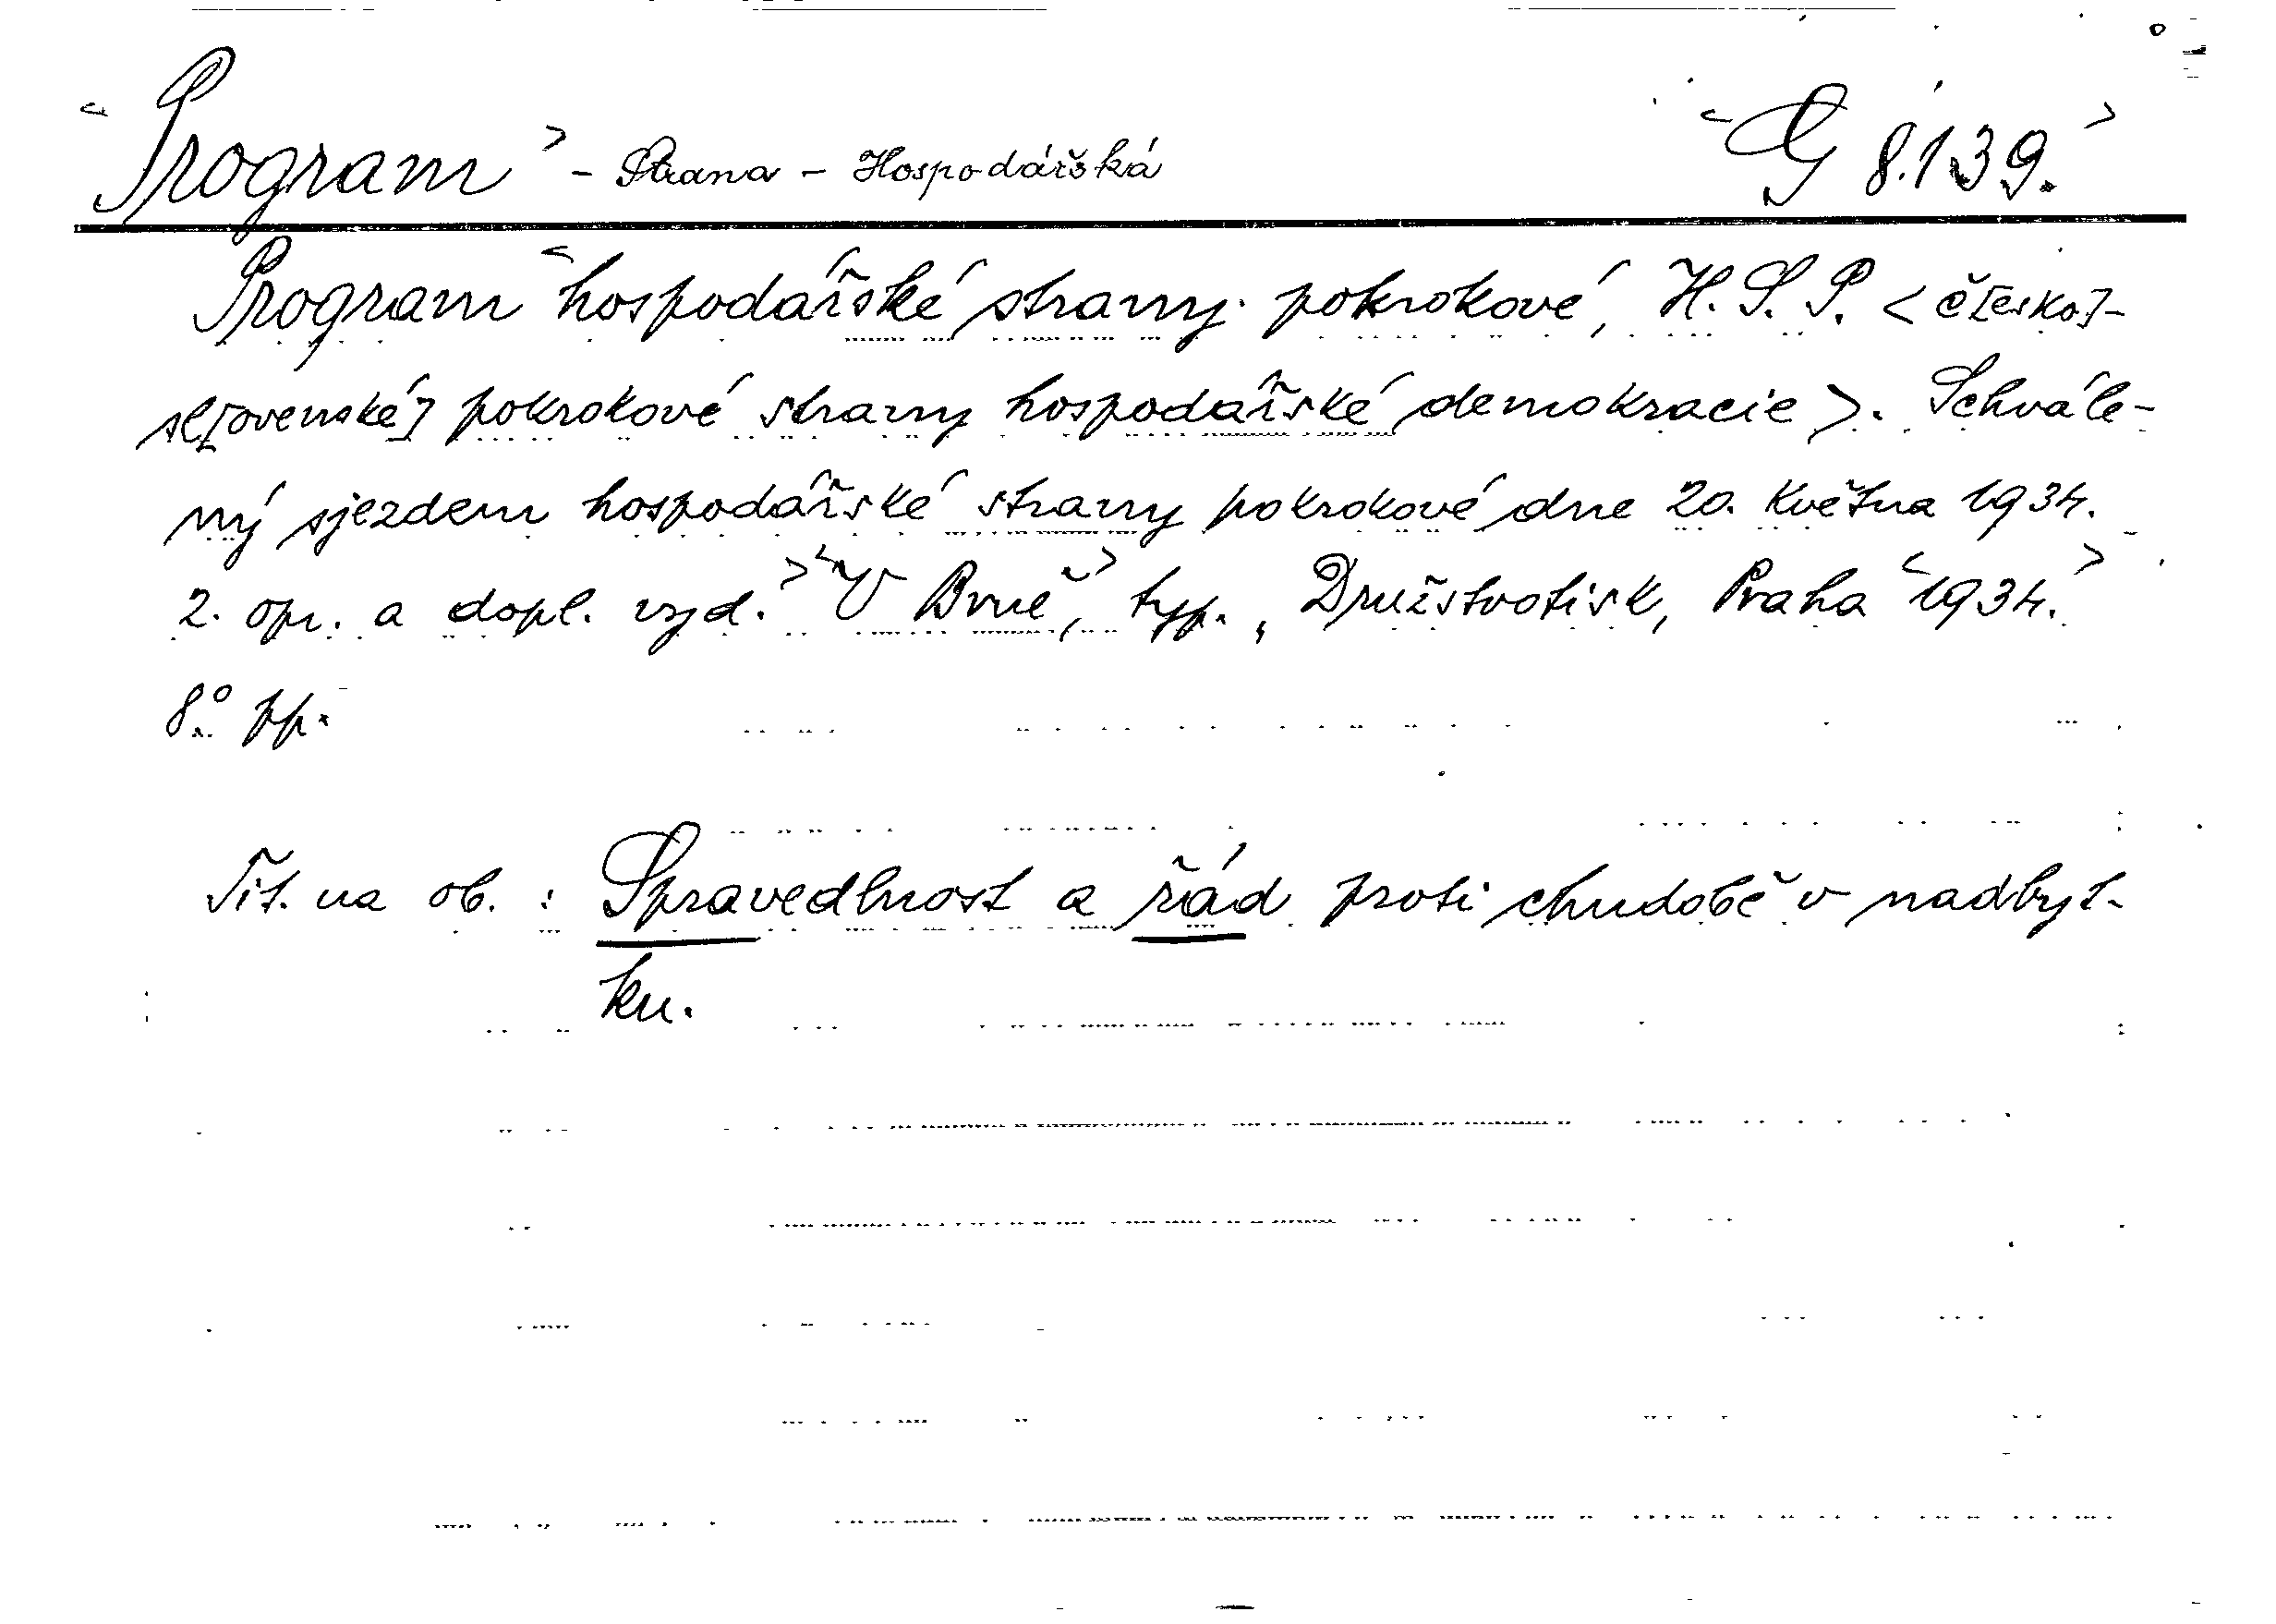 <Program> - Strana - Hospodářská <G 8.139.>
Program <hospodářské strany pokrokové, H. S. P. < č[esko]-
sl[ovenské] pokrokové strany hospodářské demokracie >. Schvále-
ný sjezdem hospodářské strany pokrokové dne 20. května 1934.
2. opr. a dopl. vyd.> <V Brně,> typ. Družstvotisk, Praha <1934.>
8.° pp.
Tit. na ob. : Spravedlnost a řád proti chudobě v nadbyt-
ku.